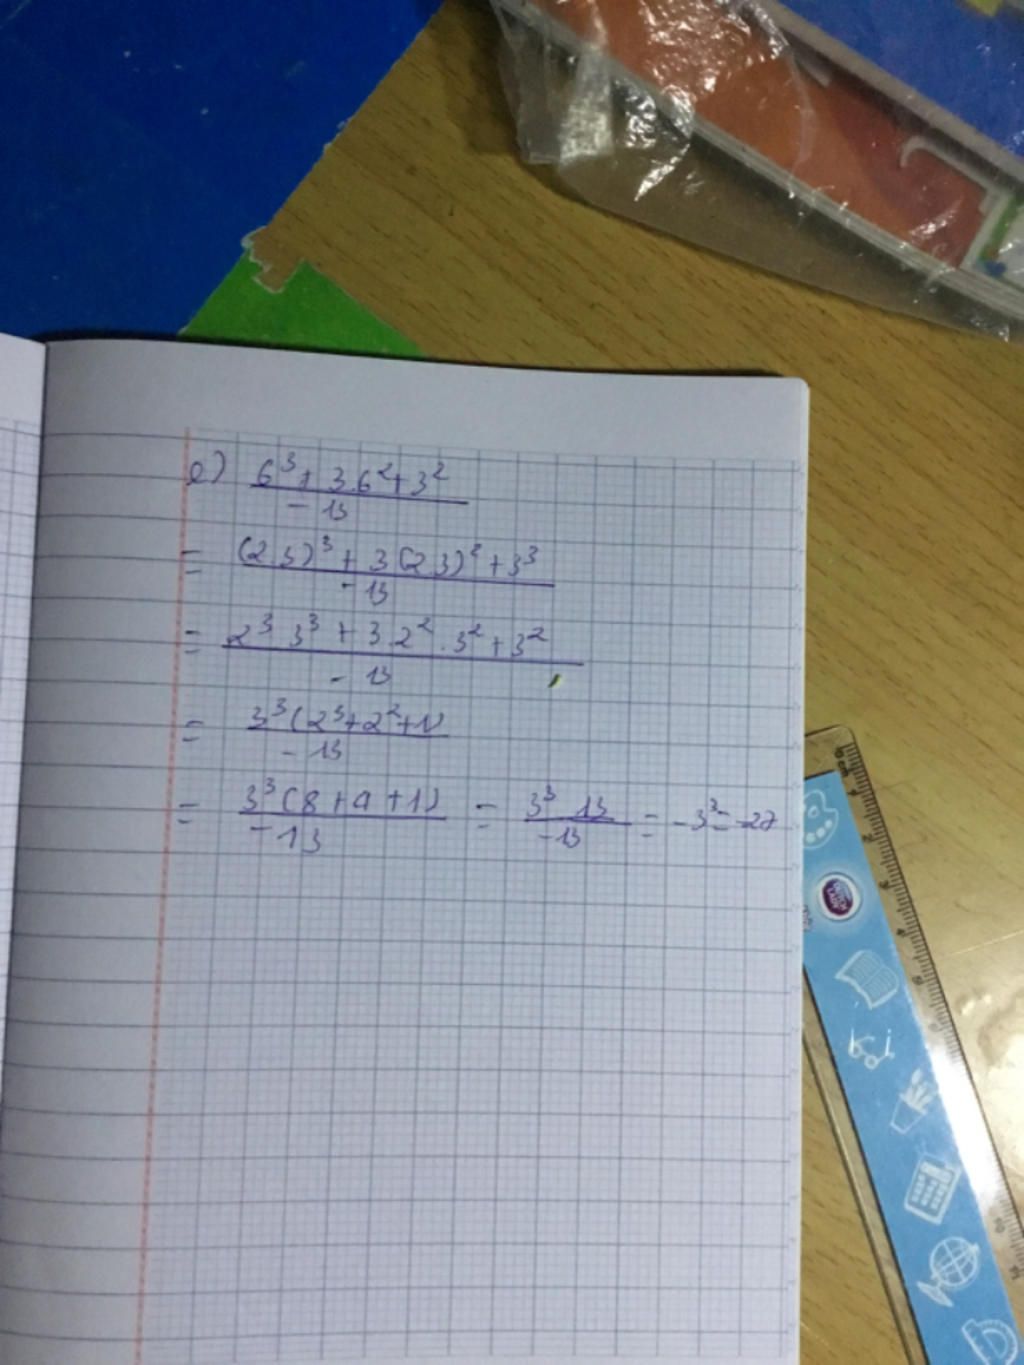 e) (6³ + 3.6² + 3²)/(-13)
= ((2.3)³ + 3(2.3)² + 3³)/(-13)
= (2³.3³ + 3.2².3² + 3²)/(-13)
= (3³(2³+2²+1))/(-13)
= (3³(8+4+1))/(-13) = (3³.13)/(-13) = -3³ = -27